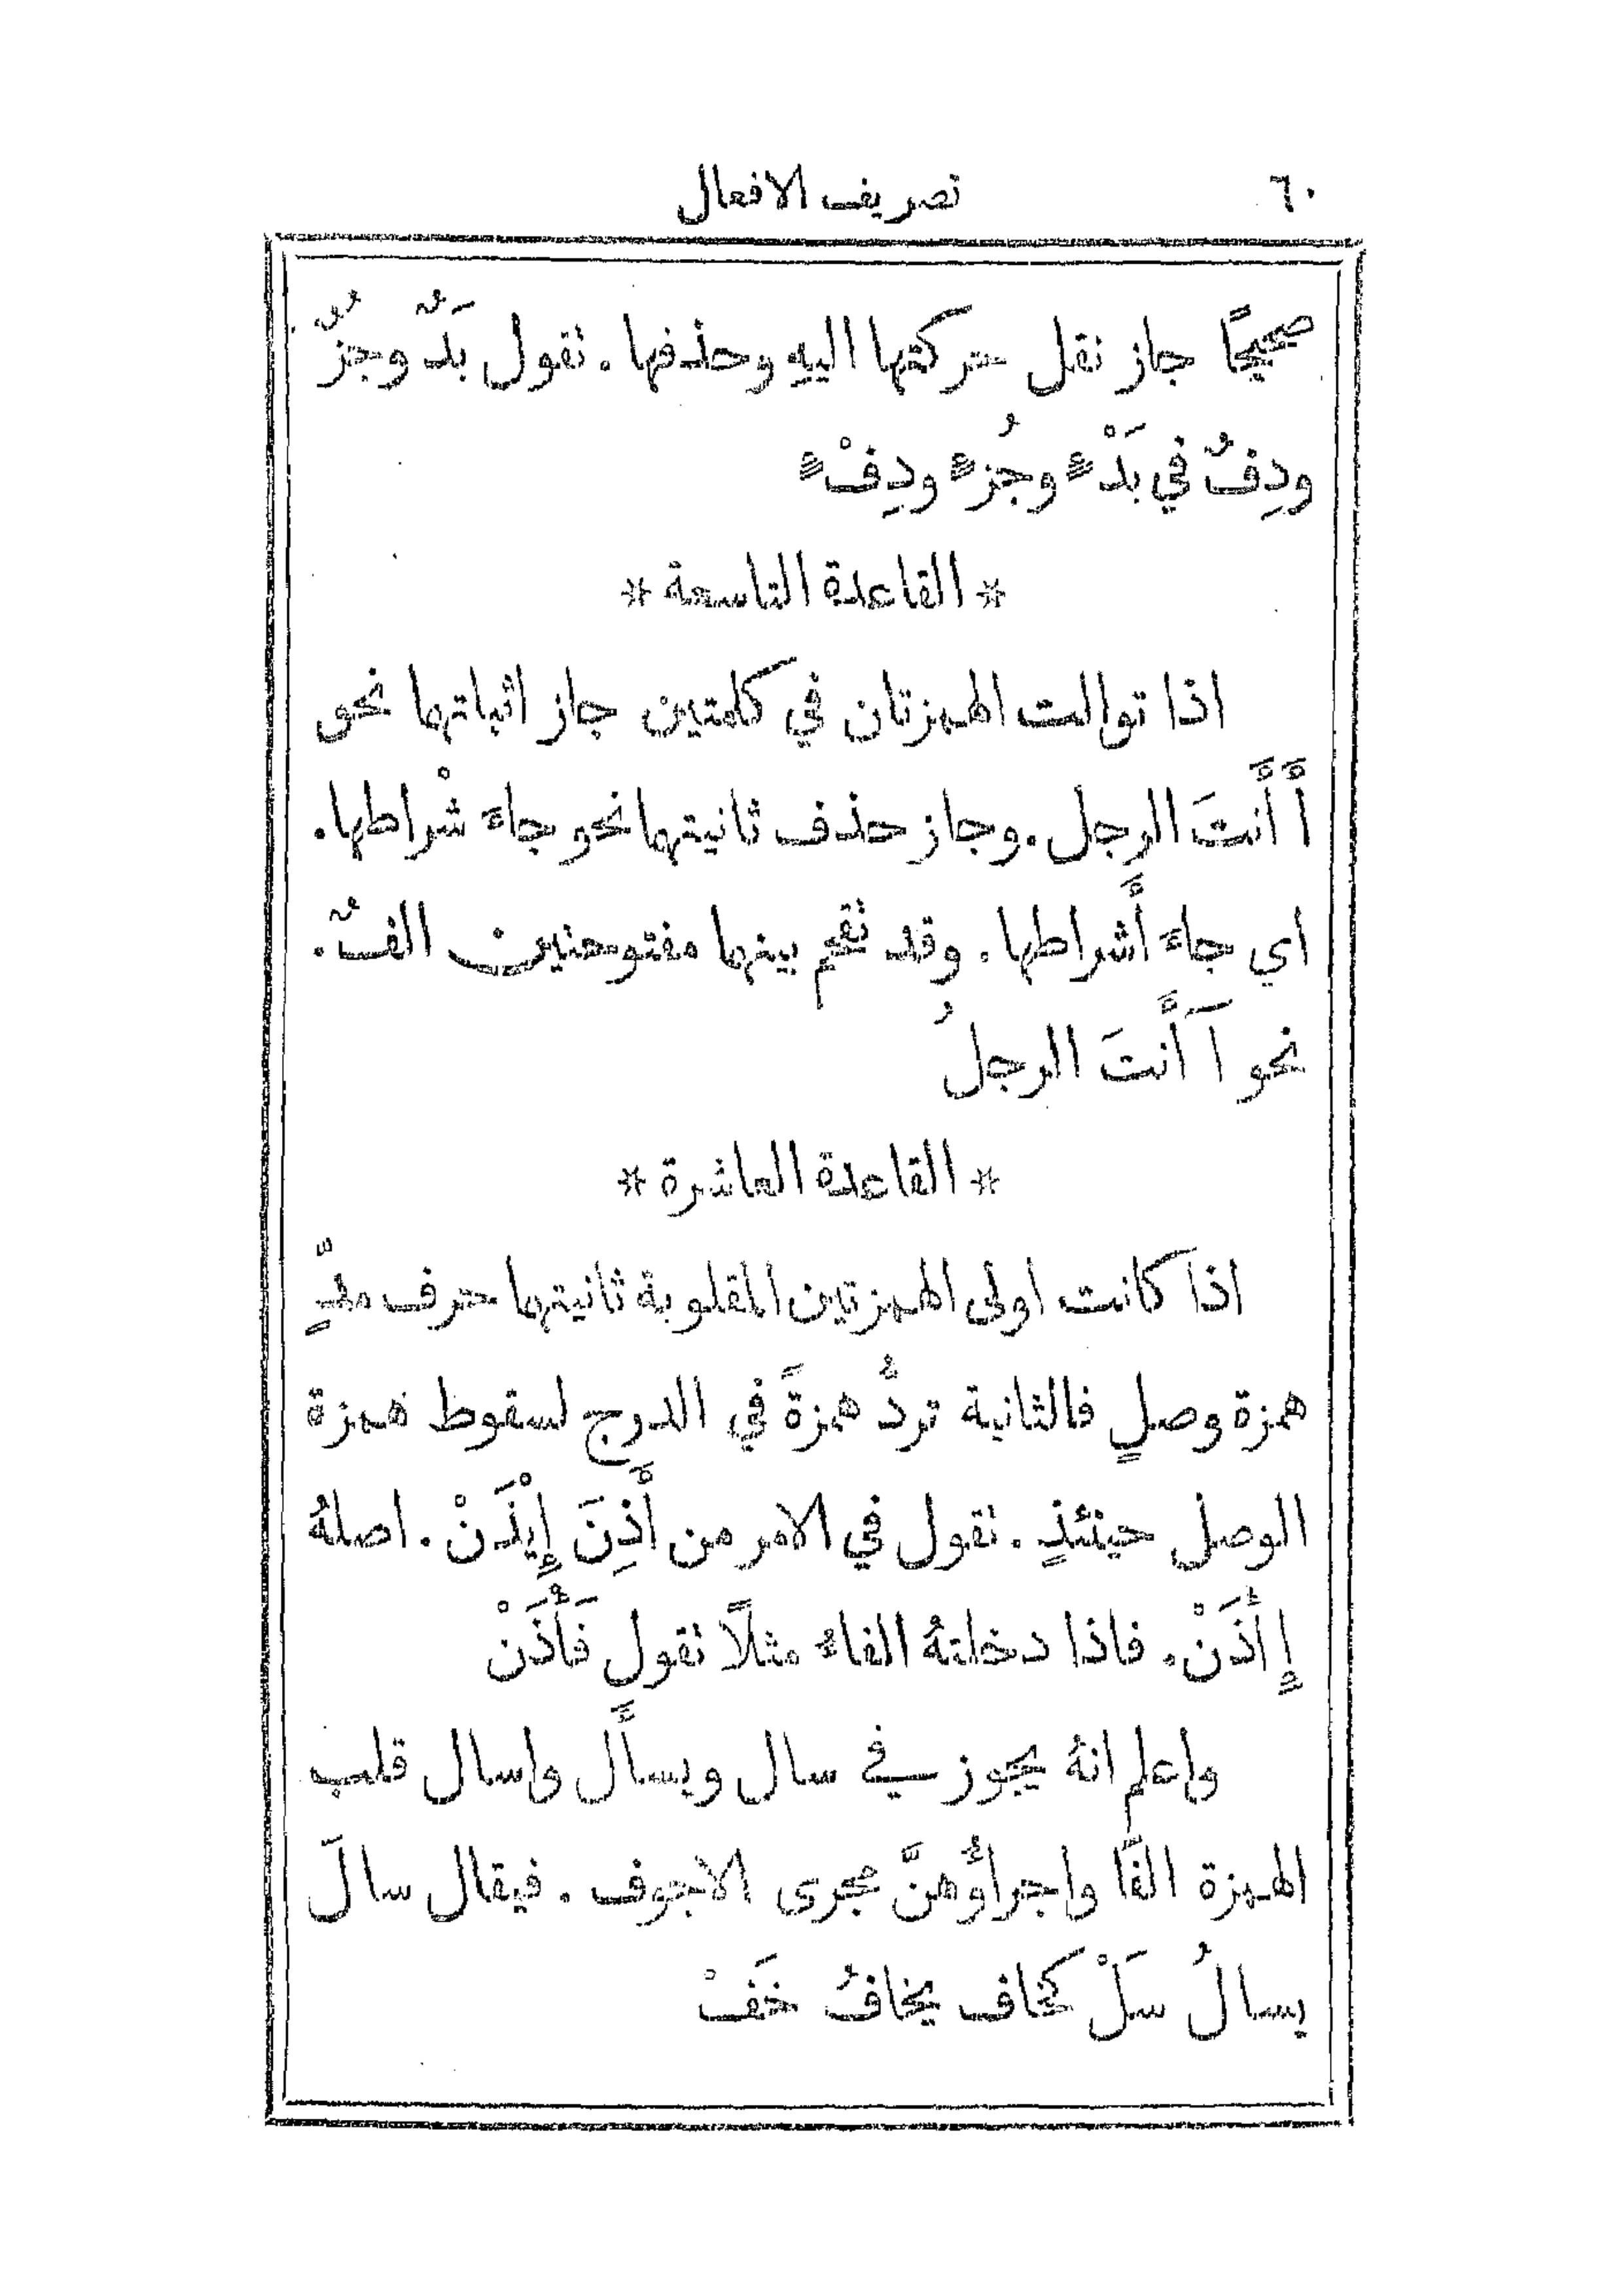 ٦٠ تصريف الافعال
صحيحًا جاز نقل حركتها اليهِ وحذفها . تقول بَدٌ وجزٌ
ودِفٌ في بَدْءٍ وجُزءٍ ودِفْءٍ
* القاعدة التاسعة *
اذا توالت الهمزتان في كلمتين جاز اثباتهما نحو
أَ أَنتَ الرجل . وجاز حذف ثانيتهما نحو جاءَ شْراطها .
اي جاءَ أَشراطها . وقد تقحم بينهما مفتوحتين الفٌ .
نحو آ أَنتَ الرجلُ
* القاعدة العاشرة *
اذا كانت اولى الهمزتين المقلوبة ثانيتهما حرف مدٍّ
همزة وصلٍ فالثانية تردُّ همزةً في الدرج لسقوط همزة
الوصل حينئذٍ . تقول في الامر من أَذِنَ إِيْذَنْ . اصلهُ
إِ أْذَنْ . فاذا دخلتهُ الفاءُ مثلاً تقول فَأْذَنْ
واعلم انهُ يجوز في سال ويسأَل واسال قلب
الهمزة الفًا واجراؤُهنَّ مجرى الاجوف . فيقال سالَ
يسالُ سَلْ كخاف يخافُ خَفْ